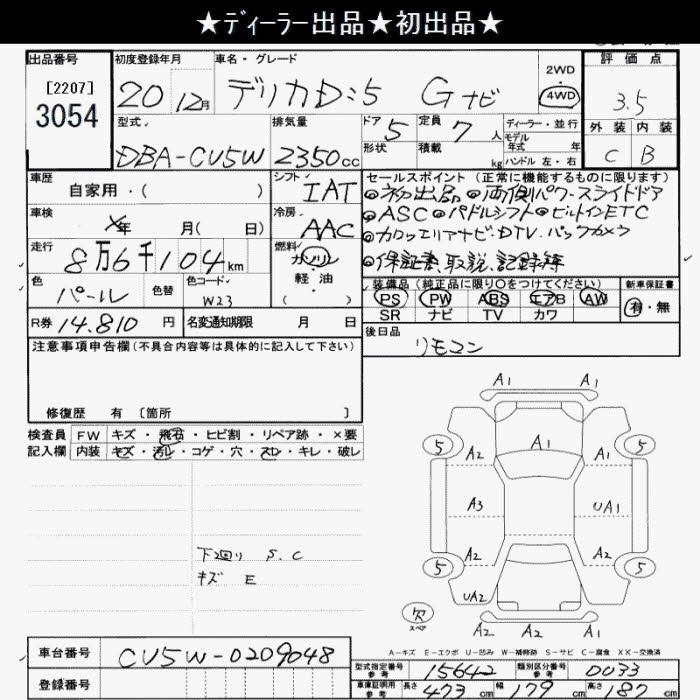 ★ディーラー出品★初出品★
出品番号 初度登録年月 車名・グレード 評価点
[2207]
3054
20 12月 デリカD:5 Gナビ
2WD
4WD
3.5
型式 排気量 ドア 定員 ディーラー・並行 外装 内装
DBA-CV5W 2350cc 5 7人
モデル年式 年
形状 積載 kg ハンドル 左・右
C B
車歴 自家用・( )
シフト IAT
セールスポイント (正常に機能するものに限ります)
◎初出品 ◎両側パワースライドドア
◎ASC ◎パドルシフト ◎ビルトインETC
◎カロッツェリアナビ.DTV.バックカメラ
◎保証書,取説,記録簿
車検 ×年 月( 日)
冷房 AAC
走行 8万6千104km
燃料 ガソリン
軽油
( )
色 パール 色替 色コード W23
装備品 (純正品に限り〇をつけてください) 新車保証書
PS PW ABS エアB AW
SR ナビ TV カワ
有・無
R券 14.810円 名変通知期限 月 日
後日品
リモコン
注意事項申告欄 (不具合内容等は具体的に記入して下さい)
修復歴 有 〔箇所 〕
検査員 FW キズ・飛石・ヒビ割・リペア跡・×要
記入欄 内装 キズ・汚レ・コゲ・穴・スレ・キレ・破レ
下廻り S.C
キズ E
A1 A1
5 A2 A1 A2 5
A3 UA1
5 A2 A2 5
UA2 A1
欠
スペア
A2 A2
A-キズ E-エクボ U-凹み W-補修跡 S-サビ C-腐食 XX-交換済
車台番号 CV5W-0209048
登録番号
型式指定番号 参考 15642 類別区分番号 参考 0033
車庫証明用 参考 長さ 473cm 幅 179cm 高さ 187cm